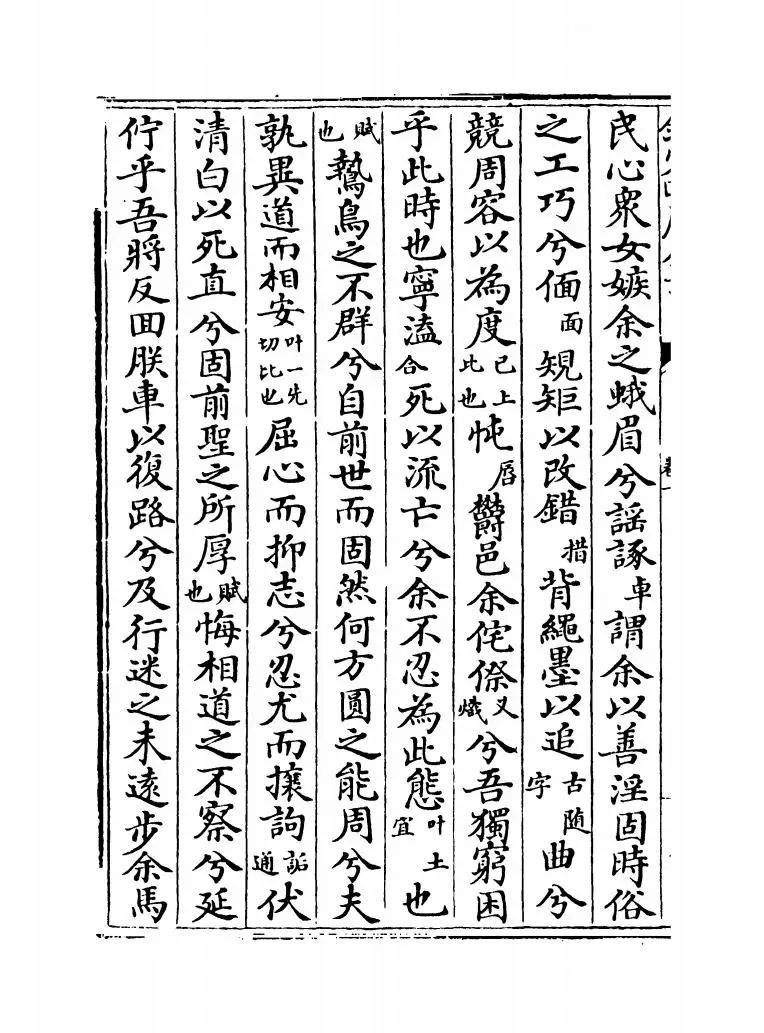 民心衆女嫉余之蛾眉兮謡諑卓謂余以善淫固時俗
之工巧兮偭面規矩以改錯措背繩墨以追古随字曲兮
競周容以為度已上比也忳唇鬱邑余侘傺又熾兮吾獨窮困
乎此時也寧溘合死以流亡兮余不忍為此態叶土宜也
賦也鷙鳥之不群兮自前世而固然何方圓之能周兮夫
孰異道而相安叶一先切比也屈心而抑志兮忍尤而攘訽詬通伏
清白以死直兮固前聖之所厚賦也悔相道之不察兮延
佇乎吾將反回朕車以復路兮及行迷之未遠步余馬